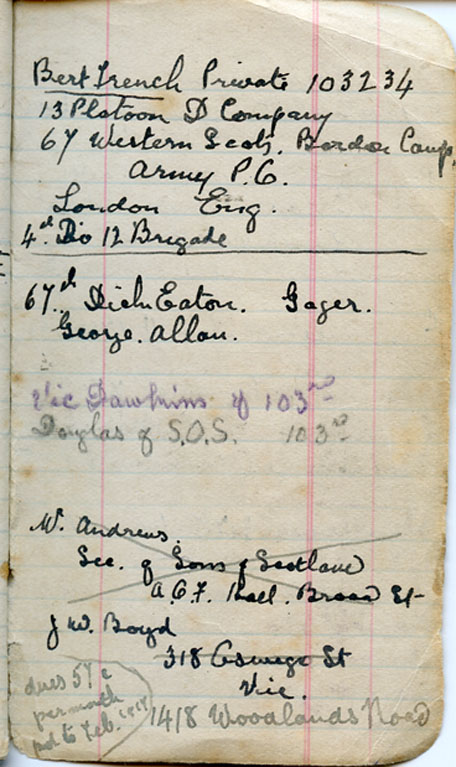 Bert French Private 103234
13 Platoon D Company
67 Western Scots. Bordon Camp.
Army P.O.
London Eng.
4th Div 12 Brigade
67th Dick Eaton. Gager.
George. Allan.
Vic Dawkins of 103rd
Douglas of S.O.S. 103rd
Mr. Andrews.
Sec. of Sons of Scotland
A.O.F. Hall. Broad St
J W. Boyd
318 Oswego St
Vic.
dues 57c
per month
pd to Feb. 1918
1418 Woodlands Road